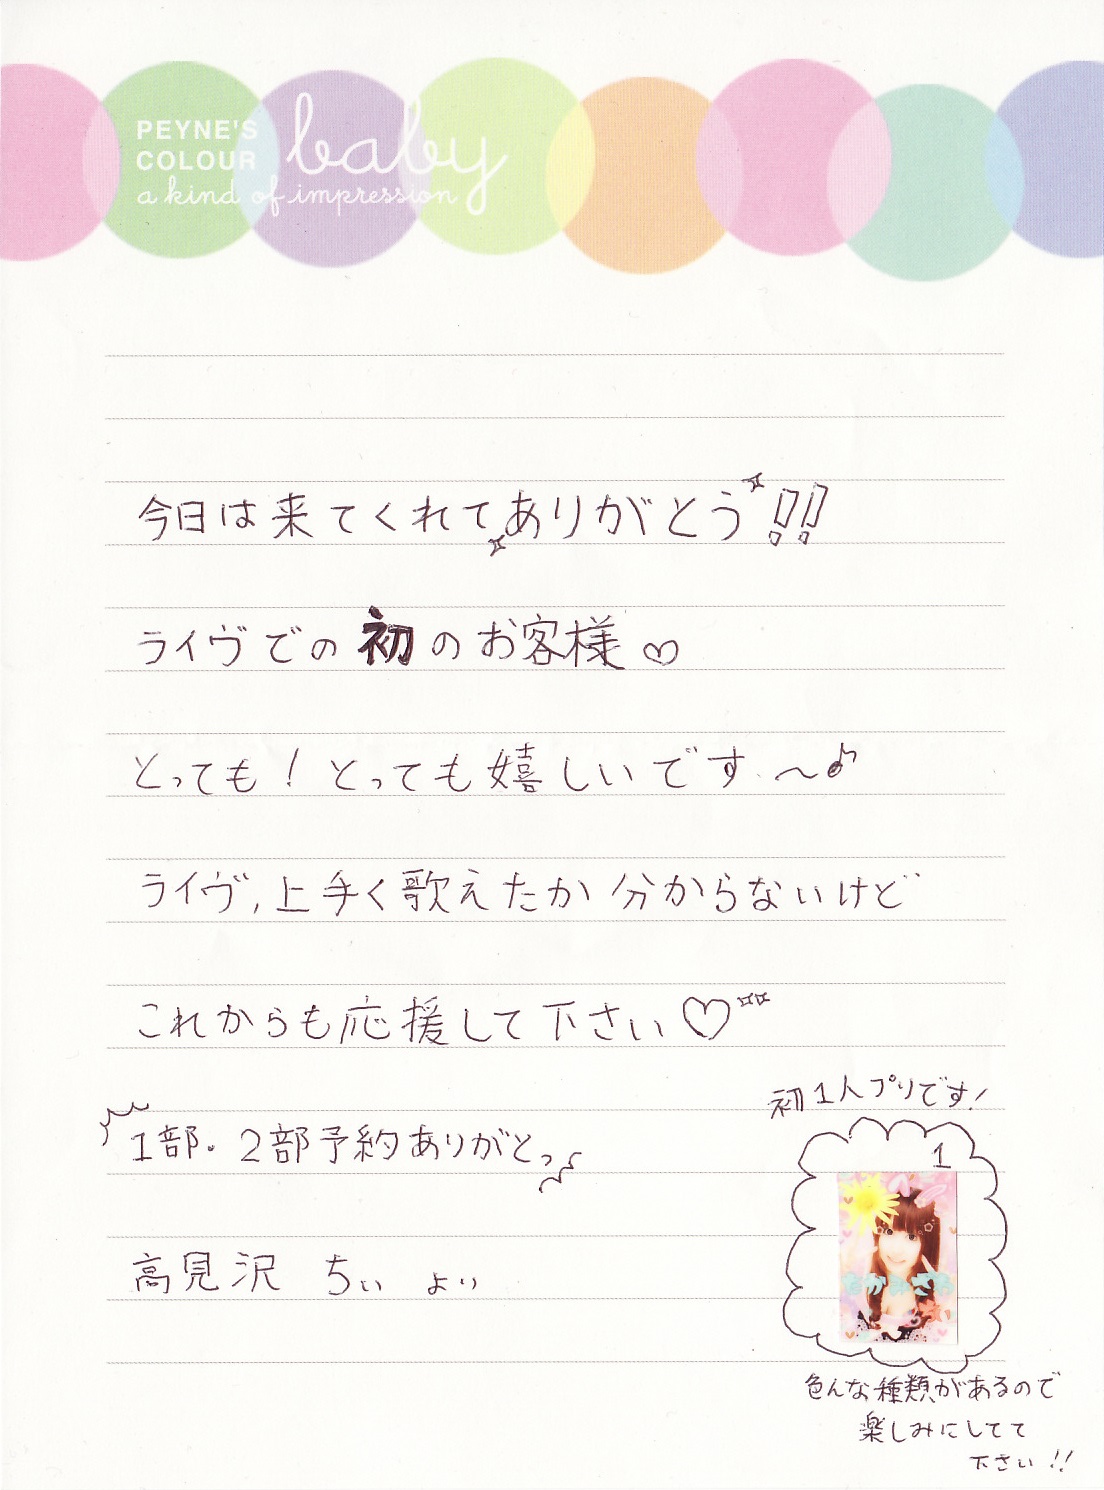 PEYNE'S
COLOUR
baby
a kind of impression
今日は来てくれてありがとう!!
ライヴでの初のお客様♡
とっても!とっても嬉しいです〜♪
ライヴ,上手く歌えたか分からないけど
これからも応援して下さい♡
1部。2部予約ありがとっ
高見沢 ちぃ より
初1人プリです!
1
たかみざわ
色んな種類があるので
楽しみにしてて
下さい!!